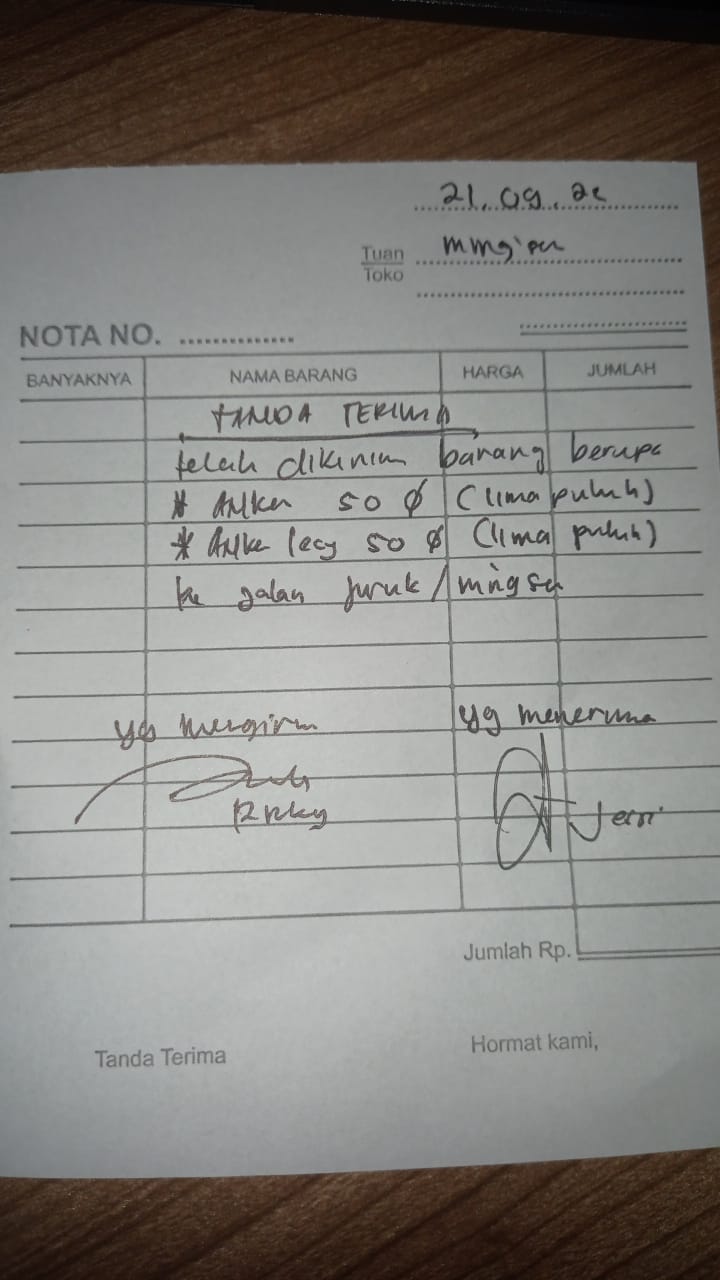 21.09.22
Tuan
Toko
NOTA NO. ..............
BANYAKNYA NAMA BARANG HARGA JUMLAH
TANDA TERIMA
telah dikirim barang berupa
* Anker 50 Ø (lima puluh)
* Anker lecy 50 Ø (lima puluh)
ke galan Juruk /
yg mengirim yg menerima
Rizky Jerri
Jumlah Rp.
Tanda Terima Hormat kami,